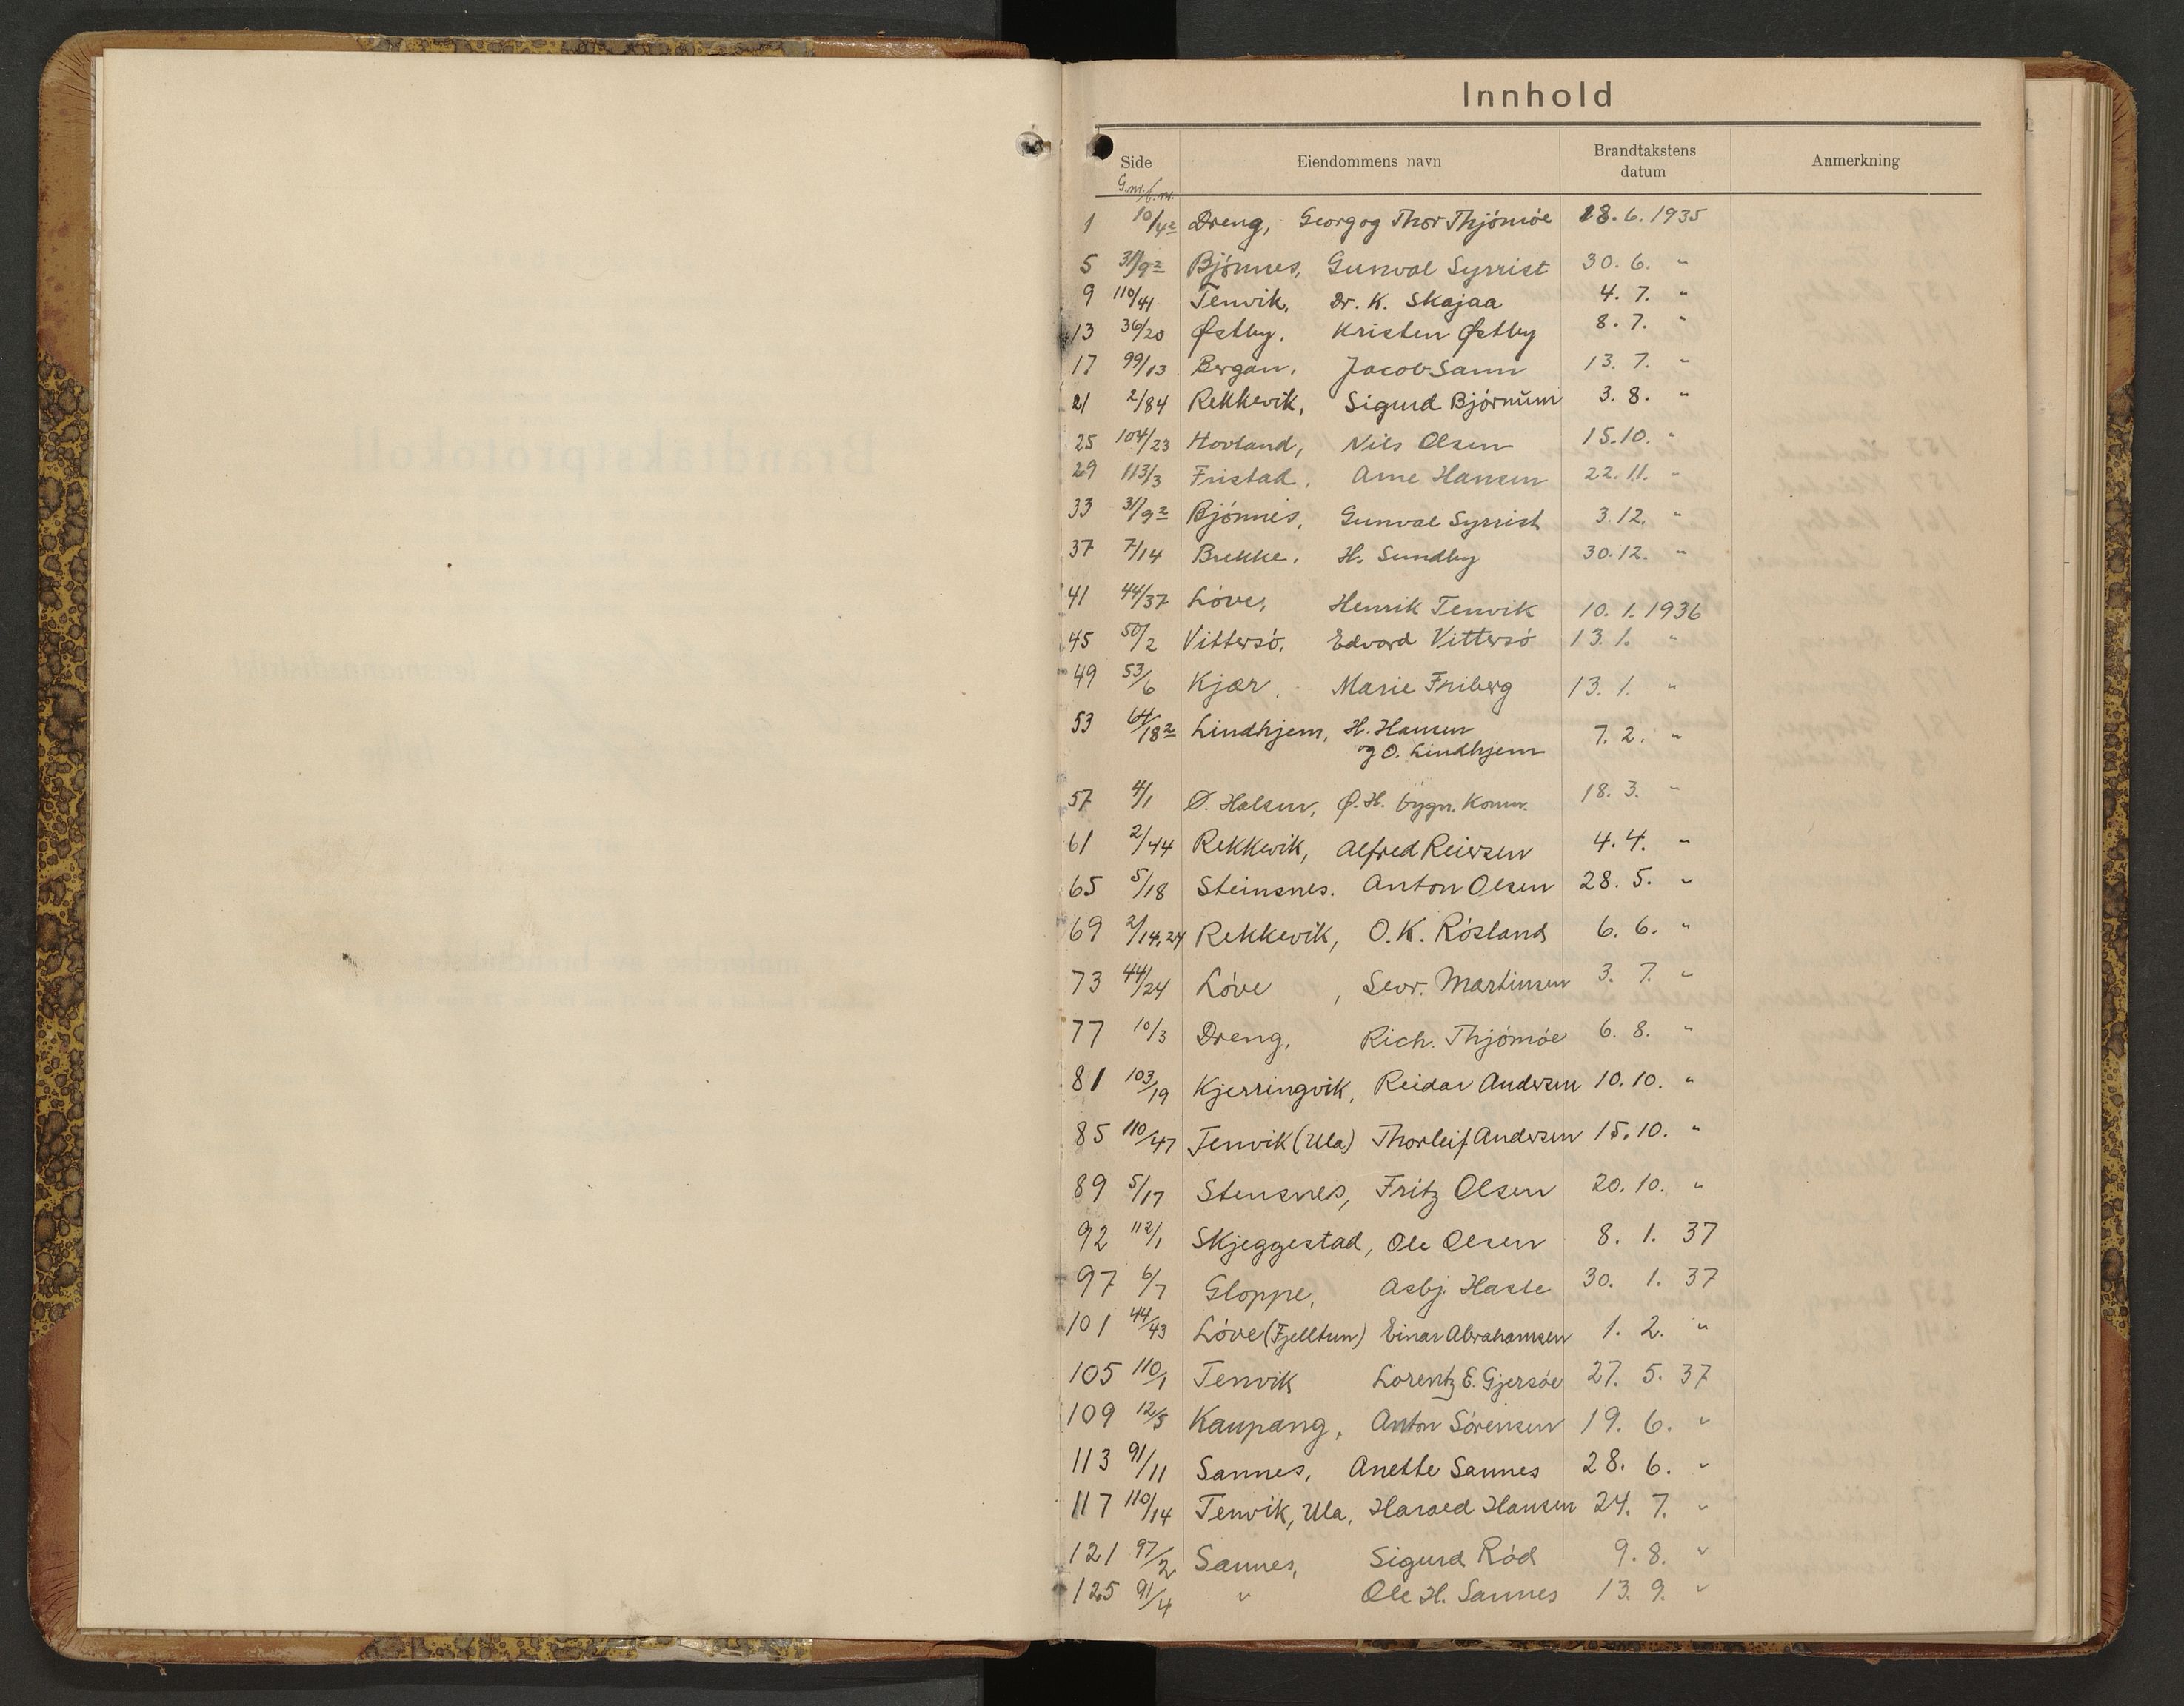 Innhold
Side Eiendommens navn Brandtakstens datum Anmerkning
G.nr./b.nr.
1 10/42 Dreng, Georg og Thor Thjömöe 18. 6. 1935
5 31/92 Bjönnes, Gunval Syrrist 30. 6. "
9 110/41 Tenvik, Dr. K. Skajaa 4. 7. "
13 36/20 Østby, Kristen Østby 8. 7. "
17 99/13 Bergan, Jacob Sann 13. 7. "
21 2/84 Rekkevik, Sigurd Björnum 3. 8. "
25 104/23 Hovland, Nils Olsen 15. 10. "
29 113/3 Fristad, Arne Hansen 22. 11. "
33 31/92 Bjönnes, Gunval Syrrist 3. 12. "
37 7/14 Brekke, H. Sundby 30. 12. "
41 44/37 Löve, Henrik Tenvik 10. 1. 1936
45 50/2 Vittersö, Edvard Vittersö 13. 1. "
49 53/6 Kjær, Marie Friberg 13. 1. "
53 64/182 Lindhjem, H. Hansen 7. 2. "
og O. Lindhjem
57 4/1 Ø. Halsen, Ø. H. bygn. Komm. 18. 3. "
61 2/44 Rekkevik, Alfred Reiersen 4. 4. "
65 5/18 Steinsnes. Anton Olsen 28. 5. "
69 2/14,24 Rekkevik, O. K. Rösland 6. 6. "
73 44/24 Löve , Sevr. Martinsen 3. 7. "
77 10/3 Dreng, Rich. Thjömöe 6. 8. "
81 103/19 Kjerringvik, Reidar Andersen 10. 10. "
85 110/47 Tenvik (Ula) Thorleif Andersen 15. 10. "
89 5/17 Stensnes, Fritz Olsen 20. 10. "
92 112/1 Skjeggestad, Ole Olsen 8. 1. 37
97 6/7 Gloppe, Asbj. Hasle 30. 1. 37
101 44/43 Löve (Fjelltun) Einar Abrahamsen 1. 2. "
105 110/1 Tenvik Lorentz E. Gjersöe 27. 5. 37
109 12/5 Kaupang, Anton Sörensen 19. 6. "
113 91/11 Sannes, Anette Sannes 28. 6. "
117 110/14 Tenvik, Ula, Harald Hansen 24. 7. "
121 97/2 Sannes, Sigurd Röd 9. 8. "
125 91/4 " Ole H. Sannes 13. 9. "